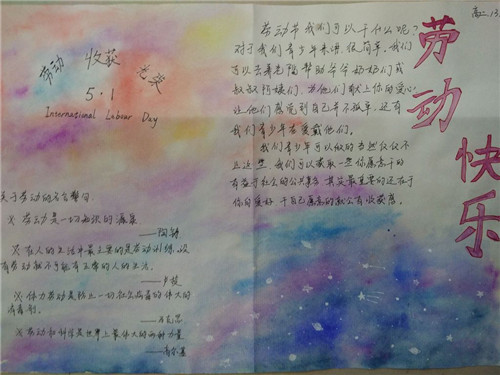 高二.13
劳动 收获 光荣
5·1
International Labour Day
关于劳动的名言警句:
※ 劳动是一切知识的源泉
——陶铸
※ 在人的生活中最主要的是劳动训练,没
有劳动就不可能有正常的人的生活。
——卢梭
※ 体力劳动是防止一切社会病毒的伟大的
消毒剂。
——马克思
※ 劳动和科学是世界上最伟大的两种力量
——高尔基
劳动节我们可以干什么呢?
对于我们青少年来讲很简单,我们
可以去养老院帮助爷爷奶奶们或
叔叔阿姨们,为他们献上你的爱心
让他们感觉到自己并不孤单,还有
我们青少年去爱戴他们。
我们青少年可以做的当然仅仅不
止这些,我们可以去做一些你愿意干的
有益于社会的公共事务,其实最重要的还在于
你的爱好,干自己愿意的就会有收获感。
劳动快乐